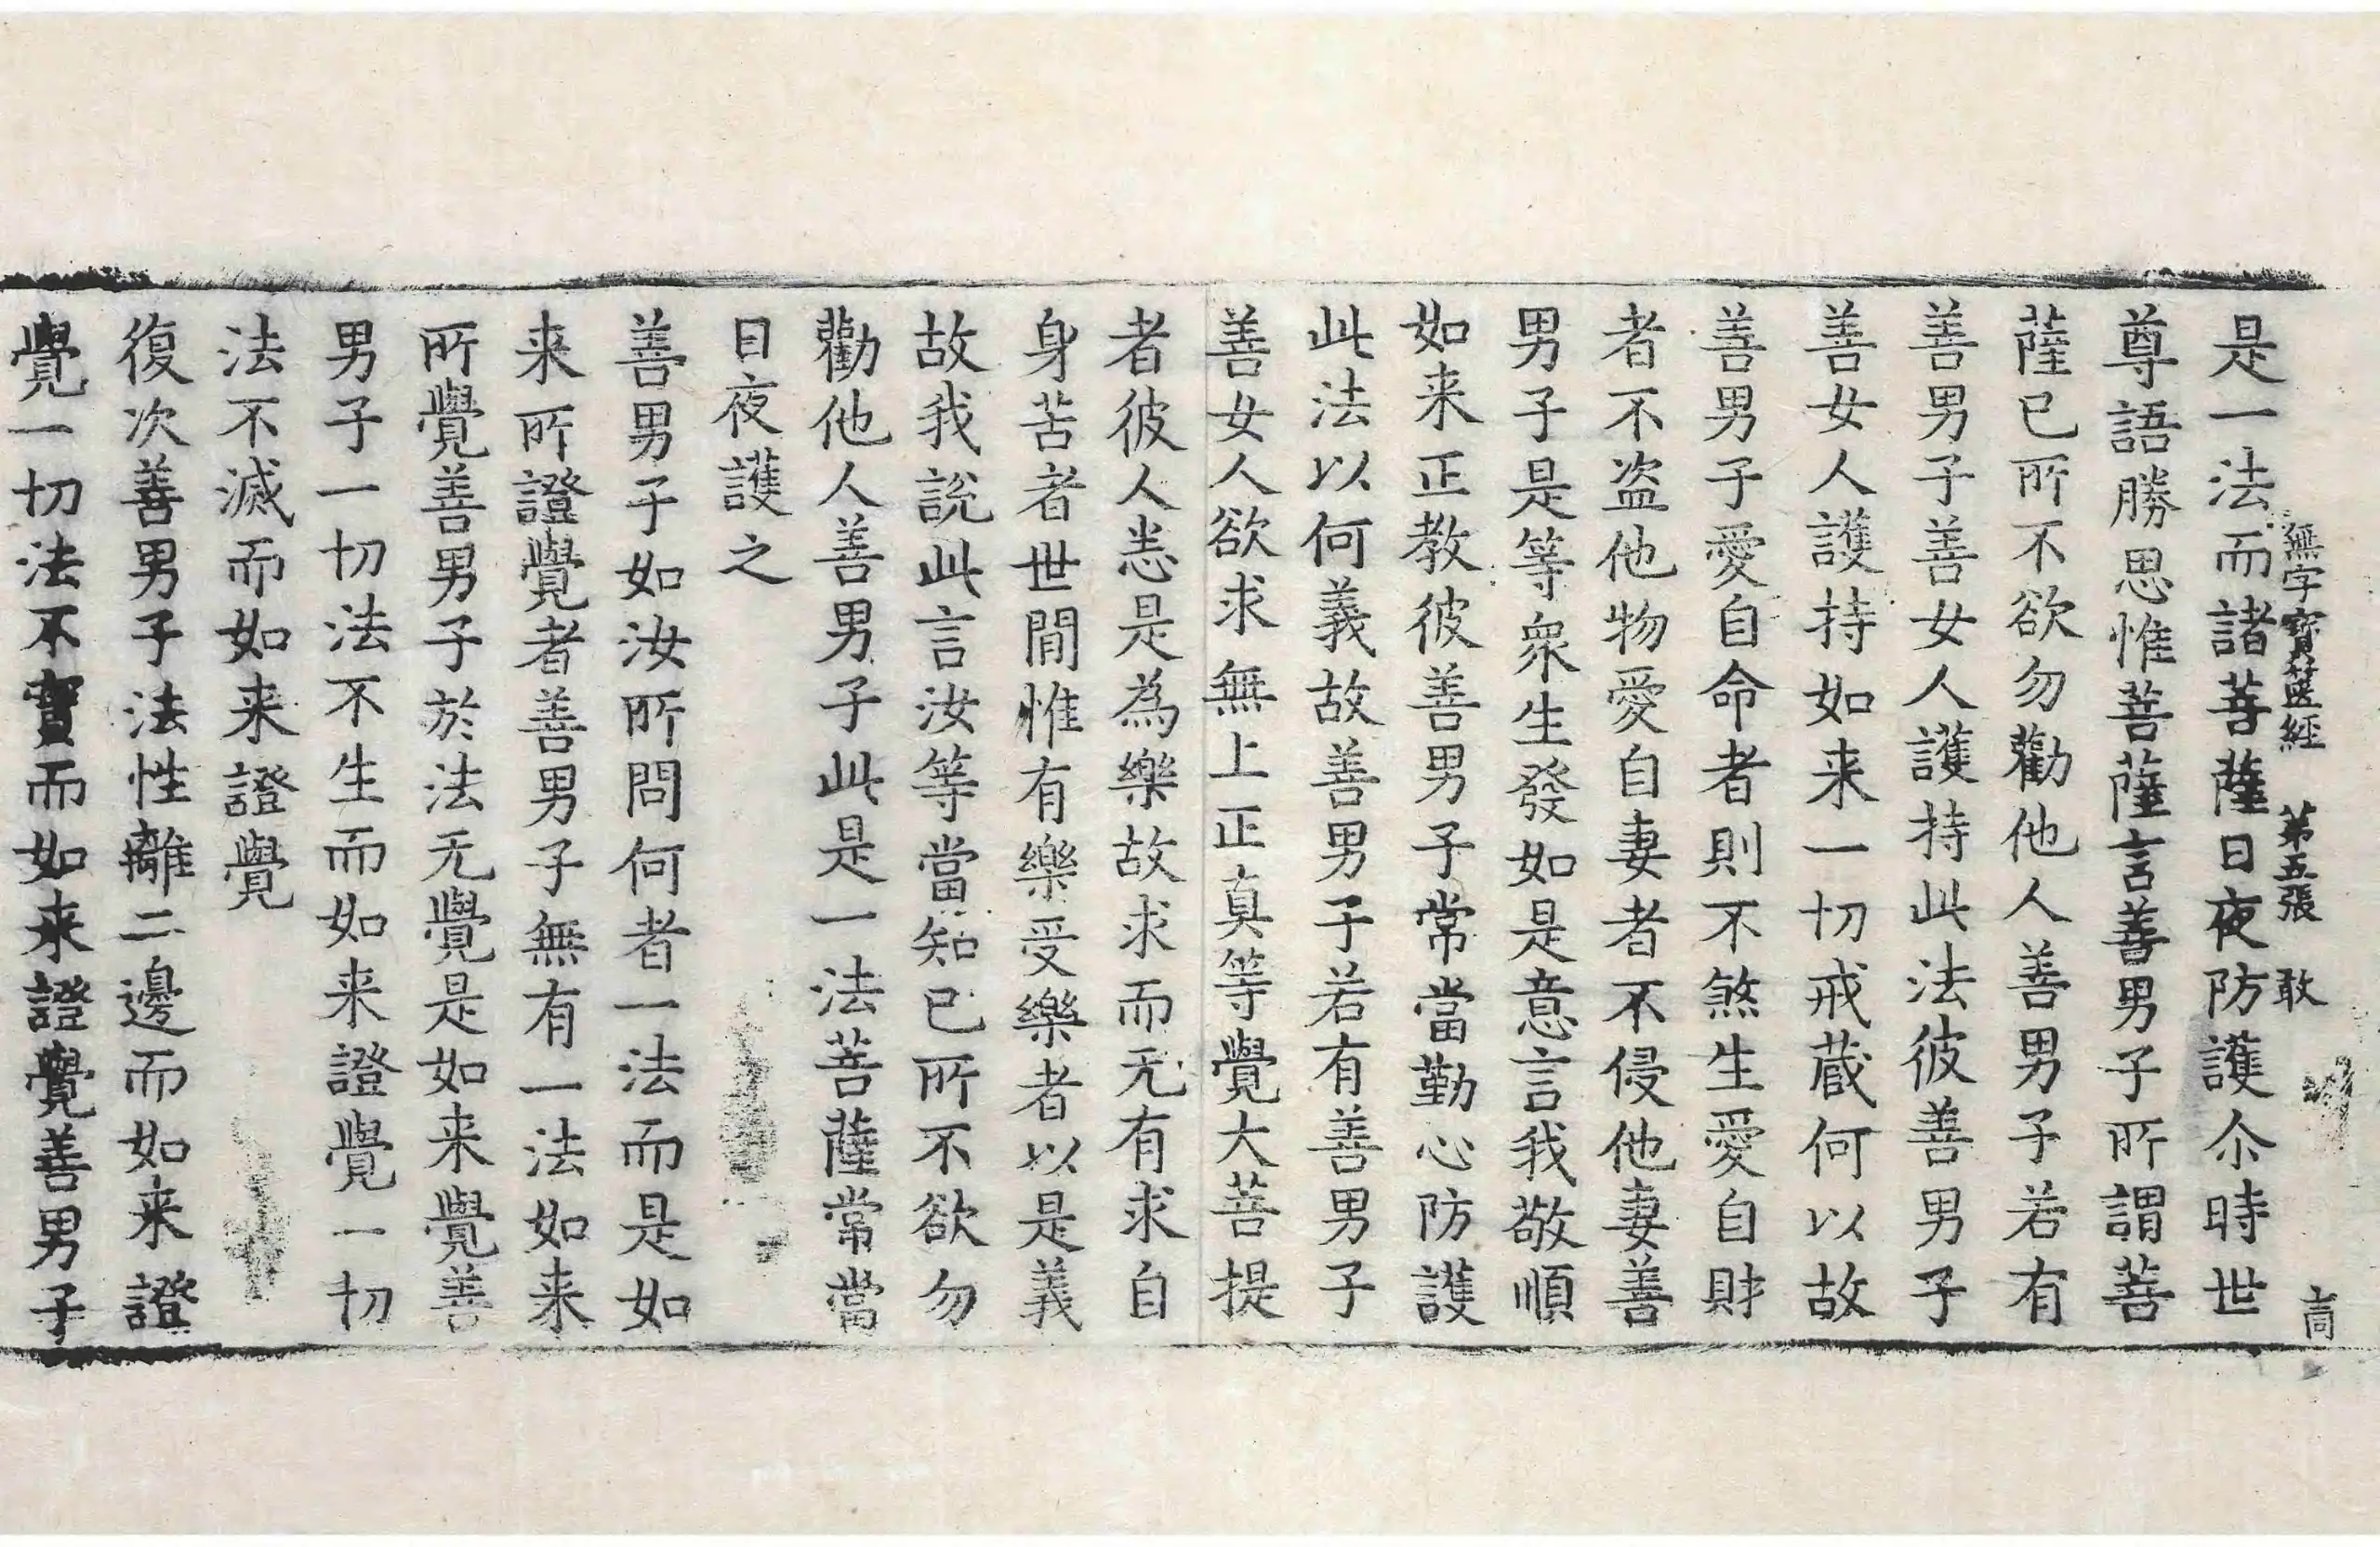 無字寶篋經　第五張　敢
是一法而諸菩薩日夜防護尒時世
尊語勝思惟菩薩言善男子所謂菩
薩已所不欲勿勸他人善男子若有
善男子善女人護持此法彼善男子
善女人護持如来一切戒蔵何以故
善男子愛自命者則不煞生愛自財
者不盗他物愛自妻者不侵他妻善
男子是等衆生發如是意言我敬順
如来正教彼善男子常當勤心防護
此法以何義故善男子若有善男子
善女人欲求無上正真等覺大菩提
者彼人悉是為樂故求而无有求自
身苦者世間惟有樂受樂者以是義
故我說此言汝等當知已所不欲勿
勸他人善男子此是一法菩薩常當
日夜護之
善男子如汝所問何者一法而是如
来所證覺者善男子無有一法如来
所覺善男子於法无覺是如来覺善
男子一切法不生而如来證覺一切
法不滅而如来證覺
復次善男子法性離二邊而如来證
覺一切法不實而如来證覺善男子